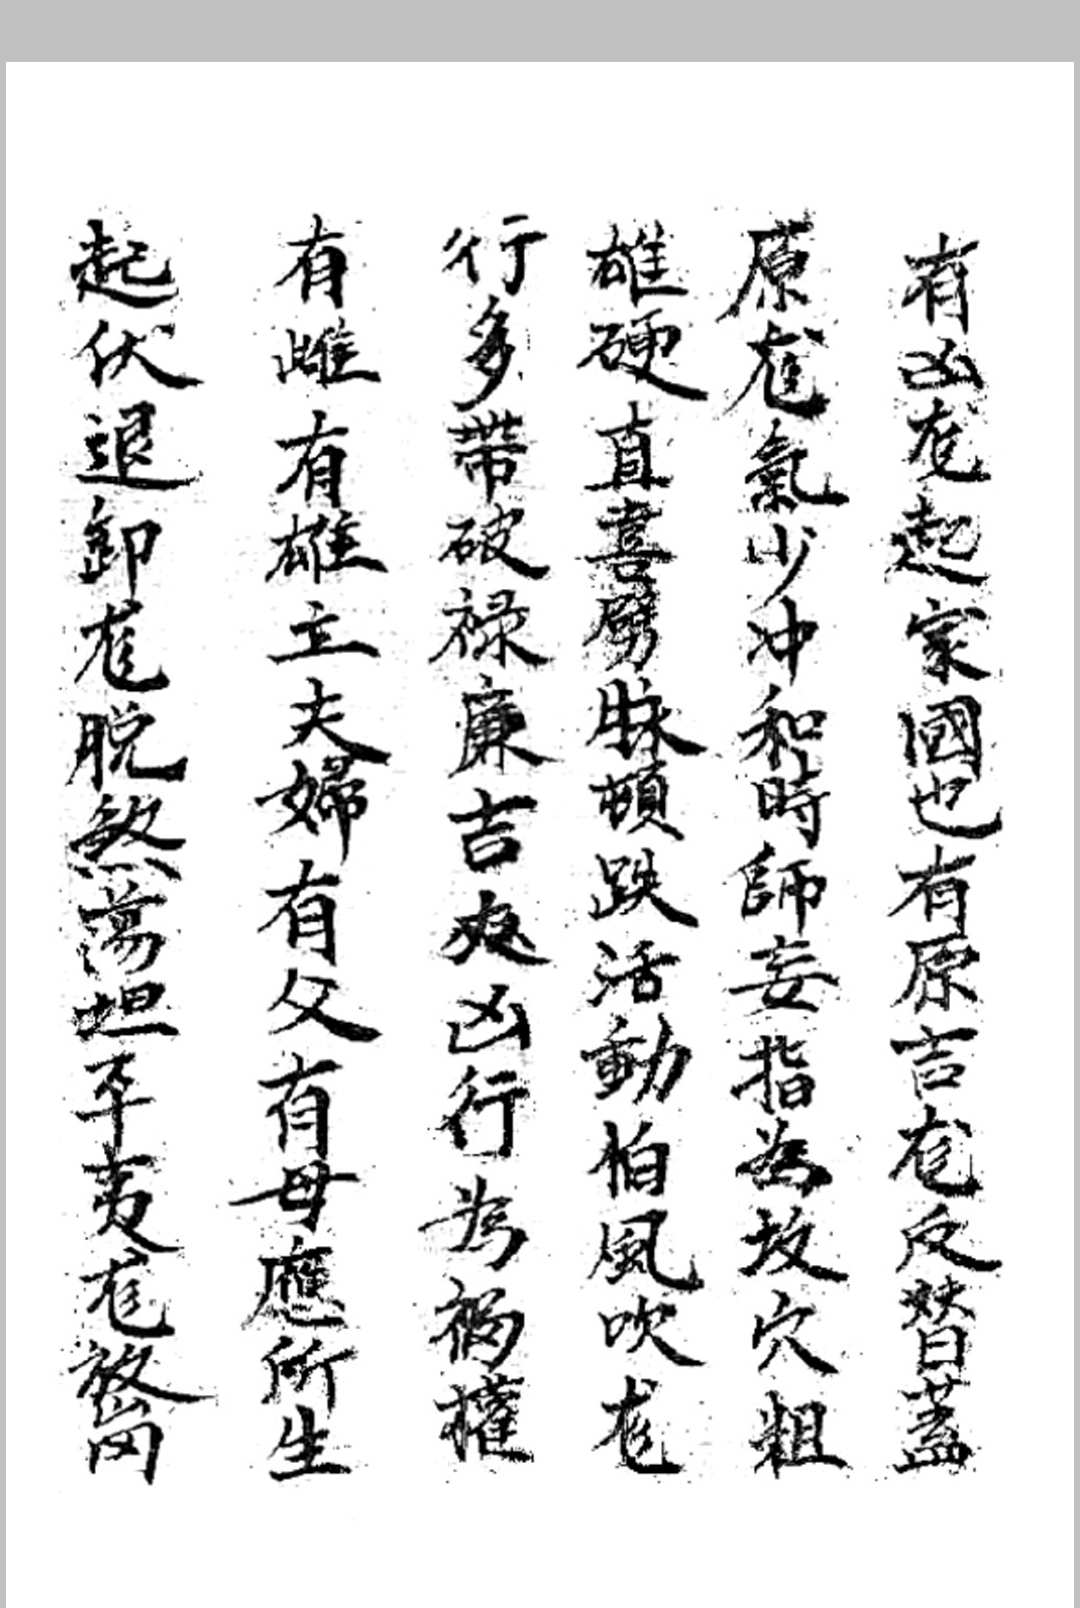 有凶龙起家國也有原吉龙反替蓋
原龙氣少冲和時師妄指為故穴粗
雄硬直喜劈脉頓跌活動怕風吹龙
行多帶破禄廉吉爽凶行為禍權
有雌有雄主夫婦有父有母應所生
起伏退卸龙脱煞蕩坦平夷龙發崗